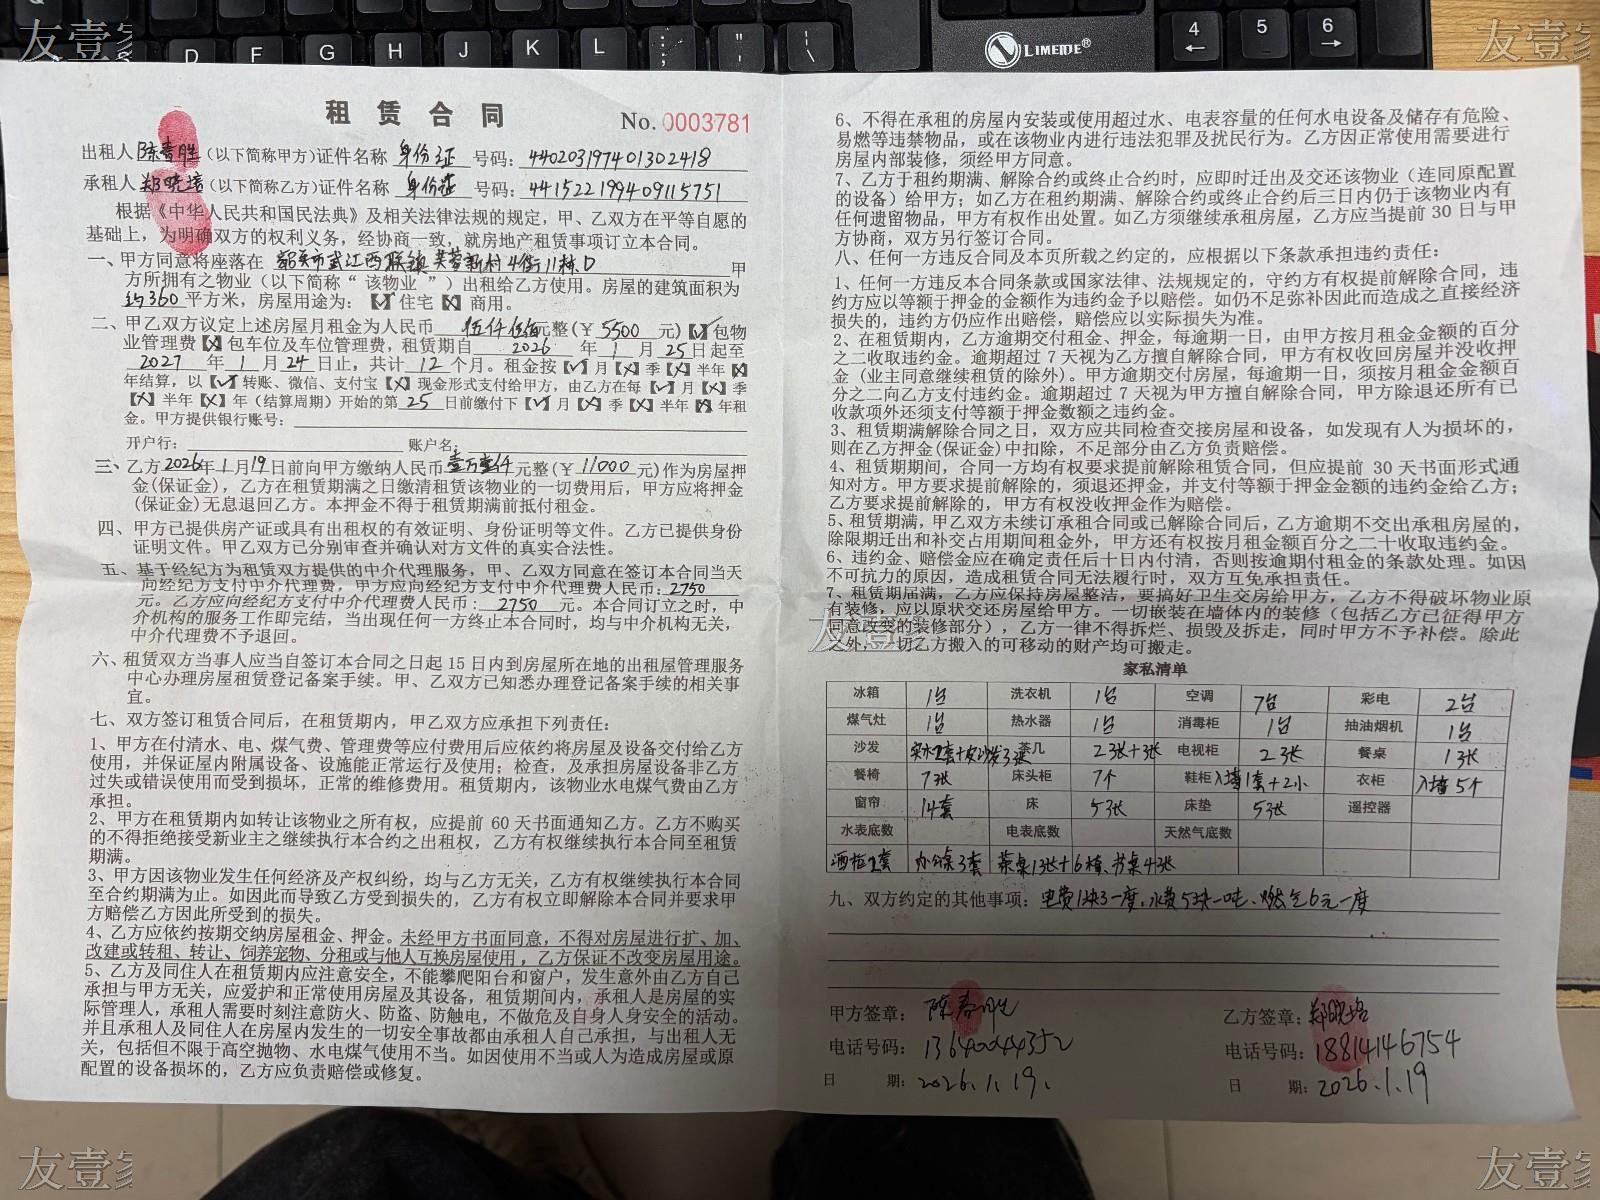 友壹家
友壹家
D F G H J K L ; " \
LIMEIDE®
4 5 6
租赁合同
No. 0003781
出租人 陈春胜 (以下简称甲方)证件名称 身份证 号码: 440203197401302418
承租人 郑晓培 (以下简称乙方)证件名称 身份证 号码: 441522199409115751
根据《中华人民共和国民法典》及相关法律法规的规定，甲、乙双方在平等自愿的
基础上，为明确双方的权利义务，经协商一致，就房地产租赁事项订立本合同。
一、甲方同意将座落在 韶关市武江西联镇芙蓉新村4街11栋D 甲
方所拥有之物业（以下简称“该物业”）出租给乙方使用。房屋的建筑面积为
约360 平方米，房屋用途为：【√】住宅【X】商用。
二、甲乙双方议定上述房屋月租金为人民币 伍仟伍佰元整(￥5500 元)【√】包物
业管理费【X】包车位及车位管理费，租赁期自 2026 年 1 月 25 日起至
2027 年 1 月 24 日止，共计 12 个月。租金按【√】月【X】季【X】半年【X】
年结算，以【√】转账、微信、支付宝【X】现金形式支付给甲方，由乙方在每【√】月【X】季
【X】半年【X】年（结算周期）开始的第 25 日前缴付下【√】月【X】季【X】半年【X】年租
金。甲方提供银行账号：
开户行： 账户名：
三、乙方2026年1月19日前向甲方缴纳人民币壹万壹仟元整(￥11000 元)作为房屋押
金(保证金)，乙方在租赁期满之日缴清租赁该物业的一切费用后，甲方应将押金
(保证金)无息退回乙方。本押金不得于租赁期满前抵付租金。
四、甲方已提供房产证或具有出租权的有效证明、身份证明等文件。乙方已提供身份
证明文件。甲乙双方已分别审查并确认对方文件的真实合法性。
五、基于经纪方为租赁双方提供的中介代理服务，甲、乙双方同意在签订本合同当天
向经纪方支付中介代理费，甲方应向经纪方支付中介代理费人民币: 2750
元。乙方应向经纪方支付中介代理费人民币: 2750 元。本合同订立之时，中
介机构的服务工作即完结，当出现任何一方终止本合同时，均与中介机构无关，
中介代理费不予退回。
六、租赁双方当事人应当自签订本合同之日起 15 日内到房屋所在地的出租屋管理服务
中心办理房屋租赁登记备案手续。甲、乙双方已知悉办理登记备案手续的相关事
宜。
七、双方签订租赁合同后，在租赁期内，甲乙双方应承担下列责任：
1、甲方在付清水、电、煤气费、管理费等应付费用后应依约将房屋及设备交付给乙方
使用，并保证屋内附属设备、设施能正常运行及使用；检查，及承担房屋设备非乙方
过失或错误使用而受到损坏，正常的维修费用。租赁期内，该物业水电煤气费由乙方
承担。
2、甲方在租赁期内如转让该物业之所有权，应提前 60 天书面通知乙方。乙方不购买
的不得拒绝接受新业主之继续执行本合约之出租权，乙方有权继续执行本合同至租赁
期满。
3、甲方因该物业发生任何经济及产权纠纷，均与乙方无关，乙方有权继续执行本合同
至合约期满为止。如因此而导致乙方受到损失的，乙方有权立即解除本合同并要求甲
方赔偿乙方因此所受到的损失。
4、乙方应依约按期交纳房屋租金、押金。未经甲方书面同意，不得对房屋进行扩、加、
改建或转租、转让、饲养宠物、分租或与他人互换房屋使用，乙方保证不改变房屋用途。
5、乙方及同住人在租赁期内应注意安全，不能攀爬阳台和窗户，发生意外由乙方自己
承担与甲方无关，应爱护和正常使用房屋及其设备，租赁期间内，承租人是房屋的实
际管理人，承租人需要时刻注意防火、防盗、防触电，不做危及自身人身安全的活动。
并且承租人及同住人在房屋内发生的一切安全事故都由承租人自己承担，与出租人无
关，包括但不限于高空抛物、水电煤气使用不当。如因使用不当或人为造成房屋或原
配置的设备损坏的，乙方应负责赔偿或修复。
6、不得在承租的房屋内安装或使用超过水、电表容量的任何水电设备及储存有危险、
易燃等违禁物品，或在该物业内进行违法犯罪及扰民行为。乙方因正常使用需要进行
房屋内部装修，须经甲方同意。
7、乙方于租约期满、解除合约或终止合约时，应即时迁出及交还该物业（连同原配置
的设备）给甲方；如乙方在租约期满、解除合约或终止合约后三日内仍于该物业内有
任何遗留物品，甲方有权作出处置。如乙方须继续承租房屋，乙方应当提前 30 日与甲
方协商，双方另行签订合同。
八、任何一方违反合同及本页所载之约定的，应根据以下条款承担违约责任：
1、任何一方违反本合同条款或国家法律、法规规定的，守约方有权提前解除合同，违
约方应以等额于押金的金额作为违约金予以赔偿。如仍不足弥补因此而造成之直接经济
损失的，违约方仍应作出赔偿，赔偿应以实际损失为准。
2、在租赁期内，乙方逾期交付租金、押金，每逾期一日，由甲方按月租金金额的百分
之二收取违约金。逾期超过 7 天视为乙方擅自解除合同，甲方有权收回房屋并没收押
金（业主同意继续租赁的除外）。甲方逾期交付房屋，每逾期一日，须按月租金金额百
分之二向乙方支付违约金。逾期超过 7 天视为甲方擅自解除合同，甲方除退还所有已
收款项外还须支付等额于押金数额之违约金。
3、租赁期满解除合同之日，双方应共同检查交接房屋和设备，如发现有人为损坏的，
则在乙方押金(保证金)中扣除，不足部分由乙方负责赔偿。
4、租赁期期间，合同一方均有权要求提前解除租赁合同，但应提前 30 天书面形式通
知对方。甲方要求提前解除的，须退还押金，并支付等额于押金金额的违约金给乙方；
乙方要求提前解除的，甲方有权没收押金作为赔偿。
5、租赁期满，甲乙双方未续订承租合同或已解除合同后，乙方逾期不交出承租房屋的，
除限期迁出和补交占用期间租金外，甲方还有权按月租金额百分之二十收取违约金。
6、违约金、赔偿金应在确定责任后十日内付清，否则按逾期付租金的条款处理。如因
不可抗力的原因，造成租赁合同无法履行时，双方互免承担责任。
7、租赁期届满，乙方应保持房屋整洁，要搞好卫生交房给甲方，乙方不得破坏物业原
有装修，应以原状交还房屋给甲方。一切嵌装在墙体内的装修（包括乙方已征得甲方
同意改变的装修部分），乙方一律不得拆烂、损毁及拆走，同时甲方不予补偿。除此
之外，一切乙方搬入的可移动的财产均可搬走。
友壹家
家私清单
冰箱 1台 洗衣机 1台 空调 7台 彩电 2台
煤气灶 1台 热水器 1台 消毒柜 1台 抽油烟机 1台
沙发 实木2套+皮沙发3张 茶几 2张+3张 电视柜 2张 餐桌 1张
餐椅 7张 床头柜 7个 鞋柜 入墙1套+2小 衣柜 入墙5个
窗帘 14套 床 5张 床垫 5张 遥控器
水表底数 电表底数 天然气底数
酒柜2套 办公桌3套 茶桌1张+6椅、书桌4张
九、双方约定的其他事项：电费1块3一度，水费5块一吨、燃气6元一度
甲方签章： 陈春胜 乙方签章： 郑晓培
电话号码： 13640044352 电话号码： 18814146754
日 期： 2026.1.19. 日 期： 2026.1.19
友壹家
友壹家